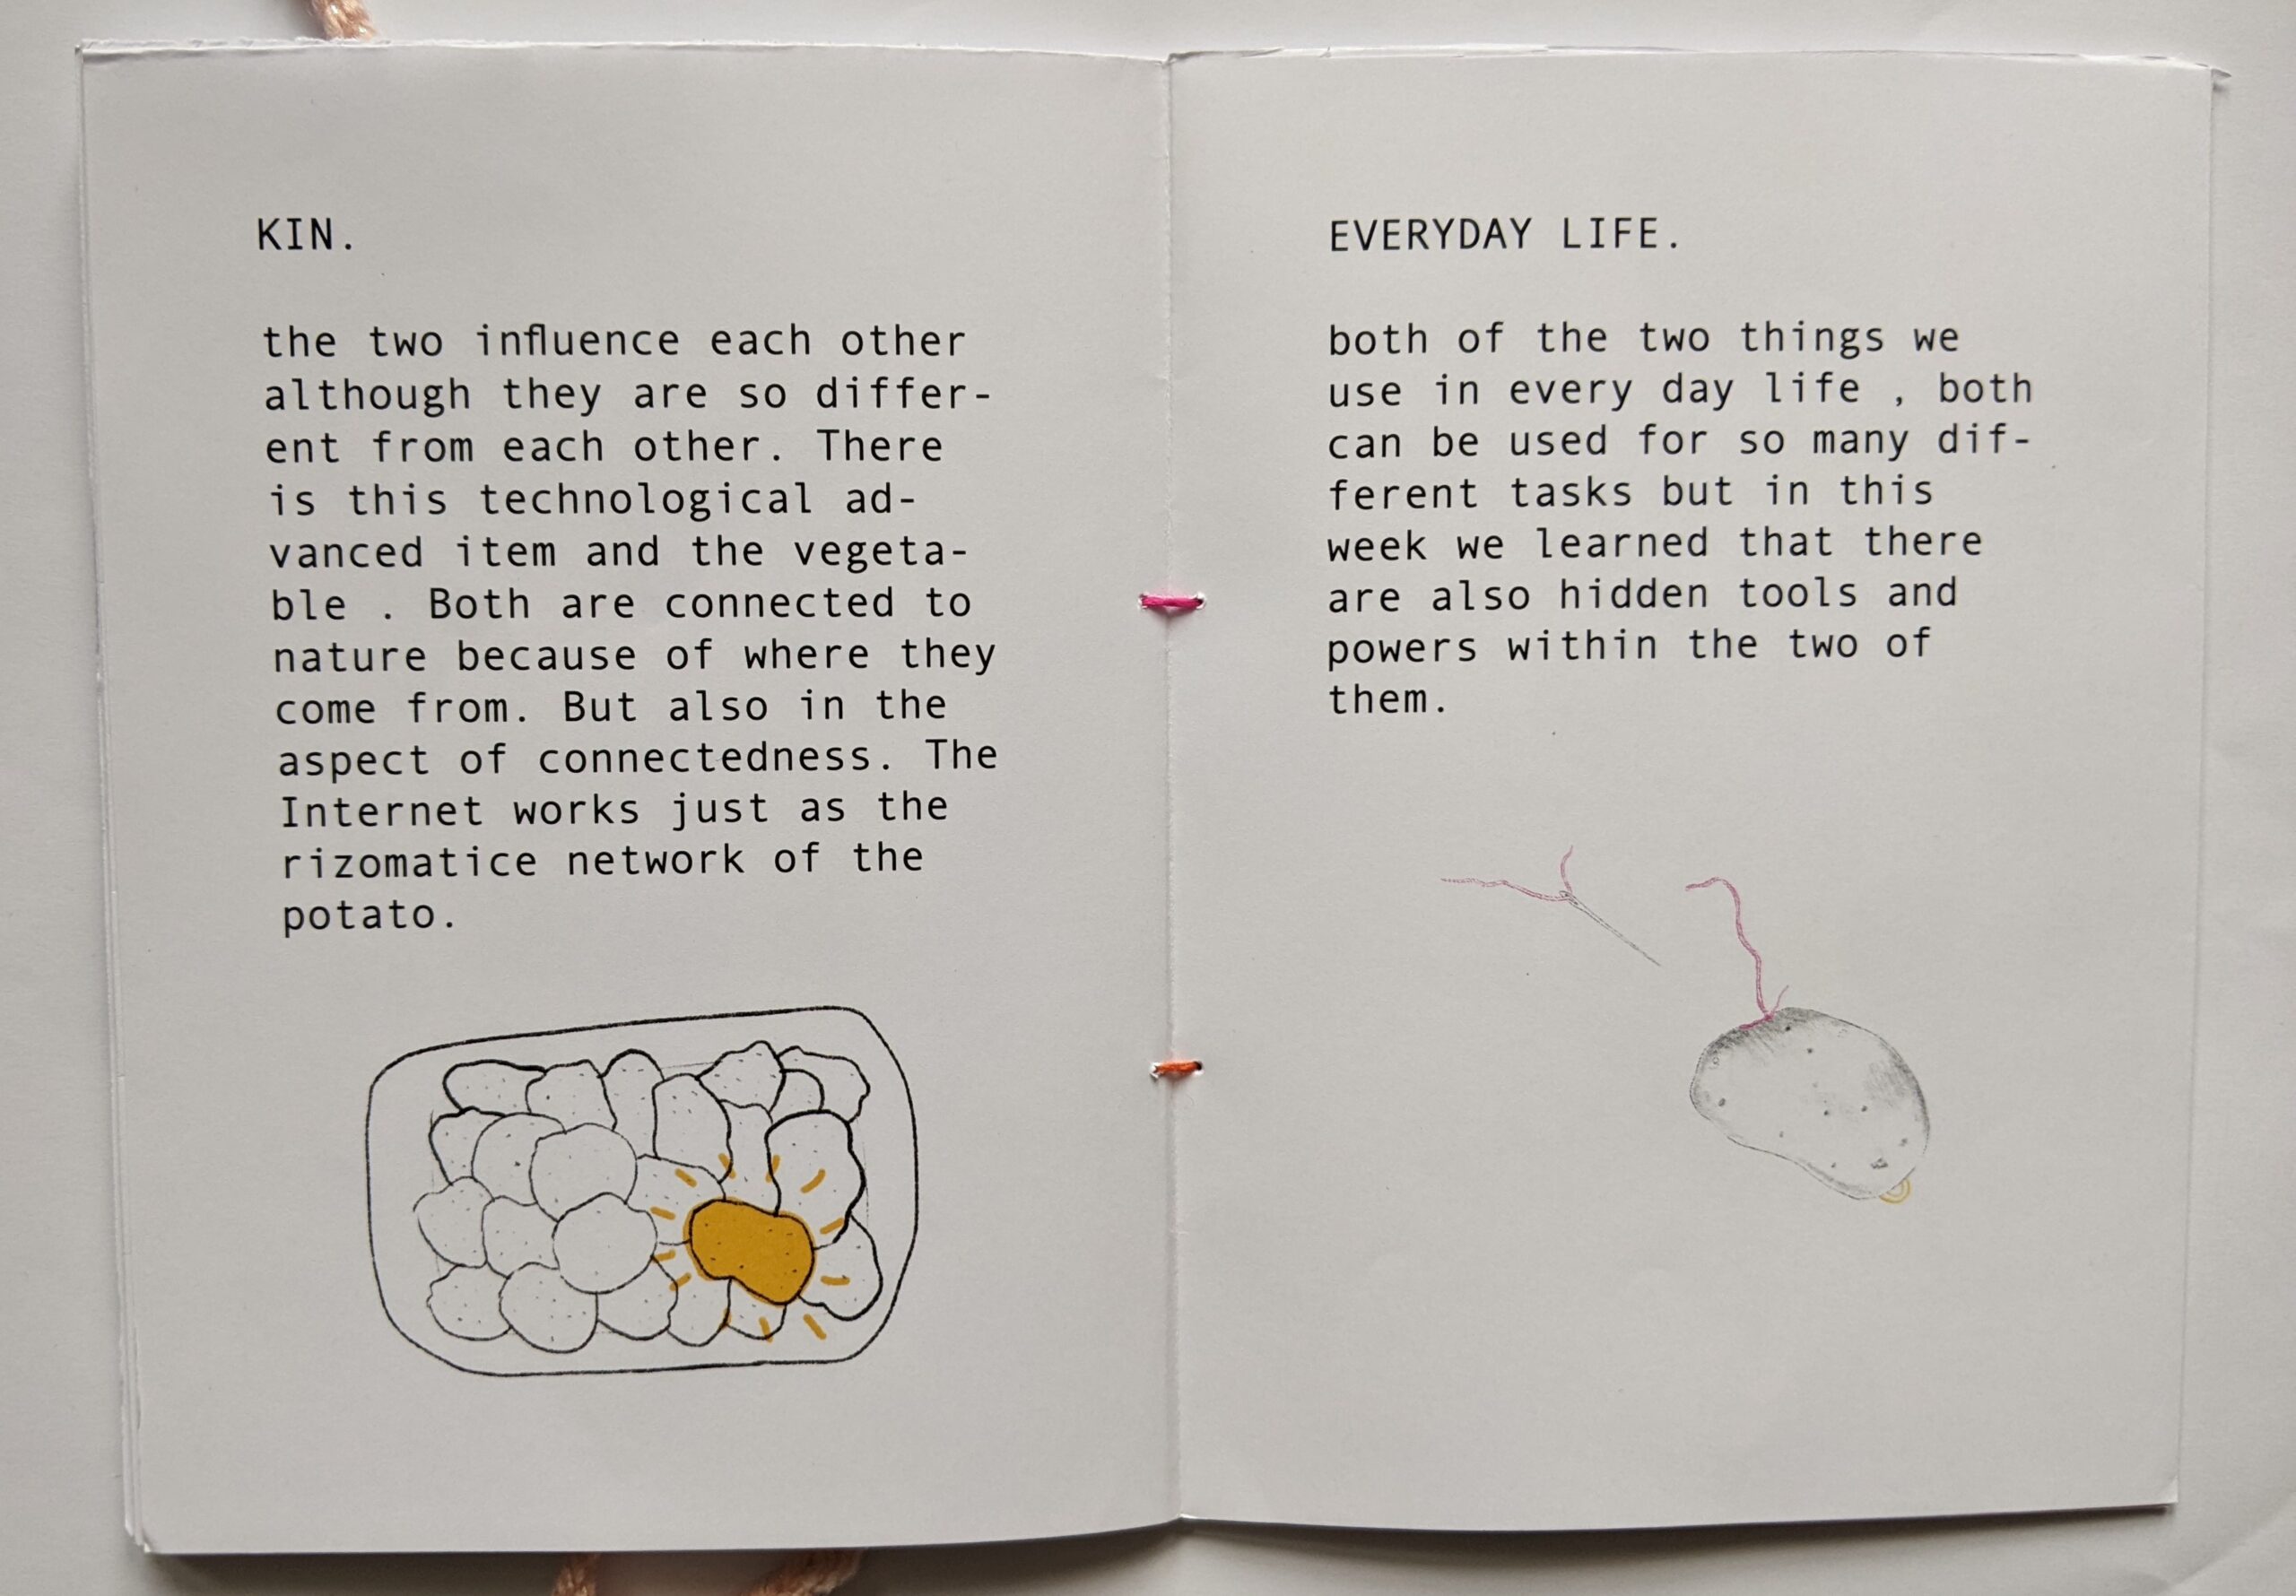 KIN.
the two influence each other
although they are so differ-
ent from each other. There
is this technological ad-
vanced item and the vegeta-
ble . Both are connected to
nature because of where they
come from. But also in the
aspect of connectedness. The
Internet works just as the
rizomatice network of the
potato.
EVERYDAY LIFE.
both of the two things we
use in every day life , both
can be used for so many dif-
ferent tasks but in this
week we learned that there
are also hidden tools and
powers within the two of
them.